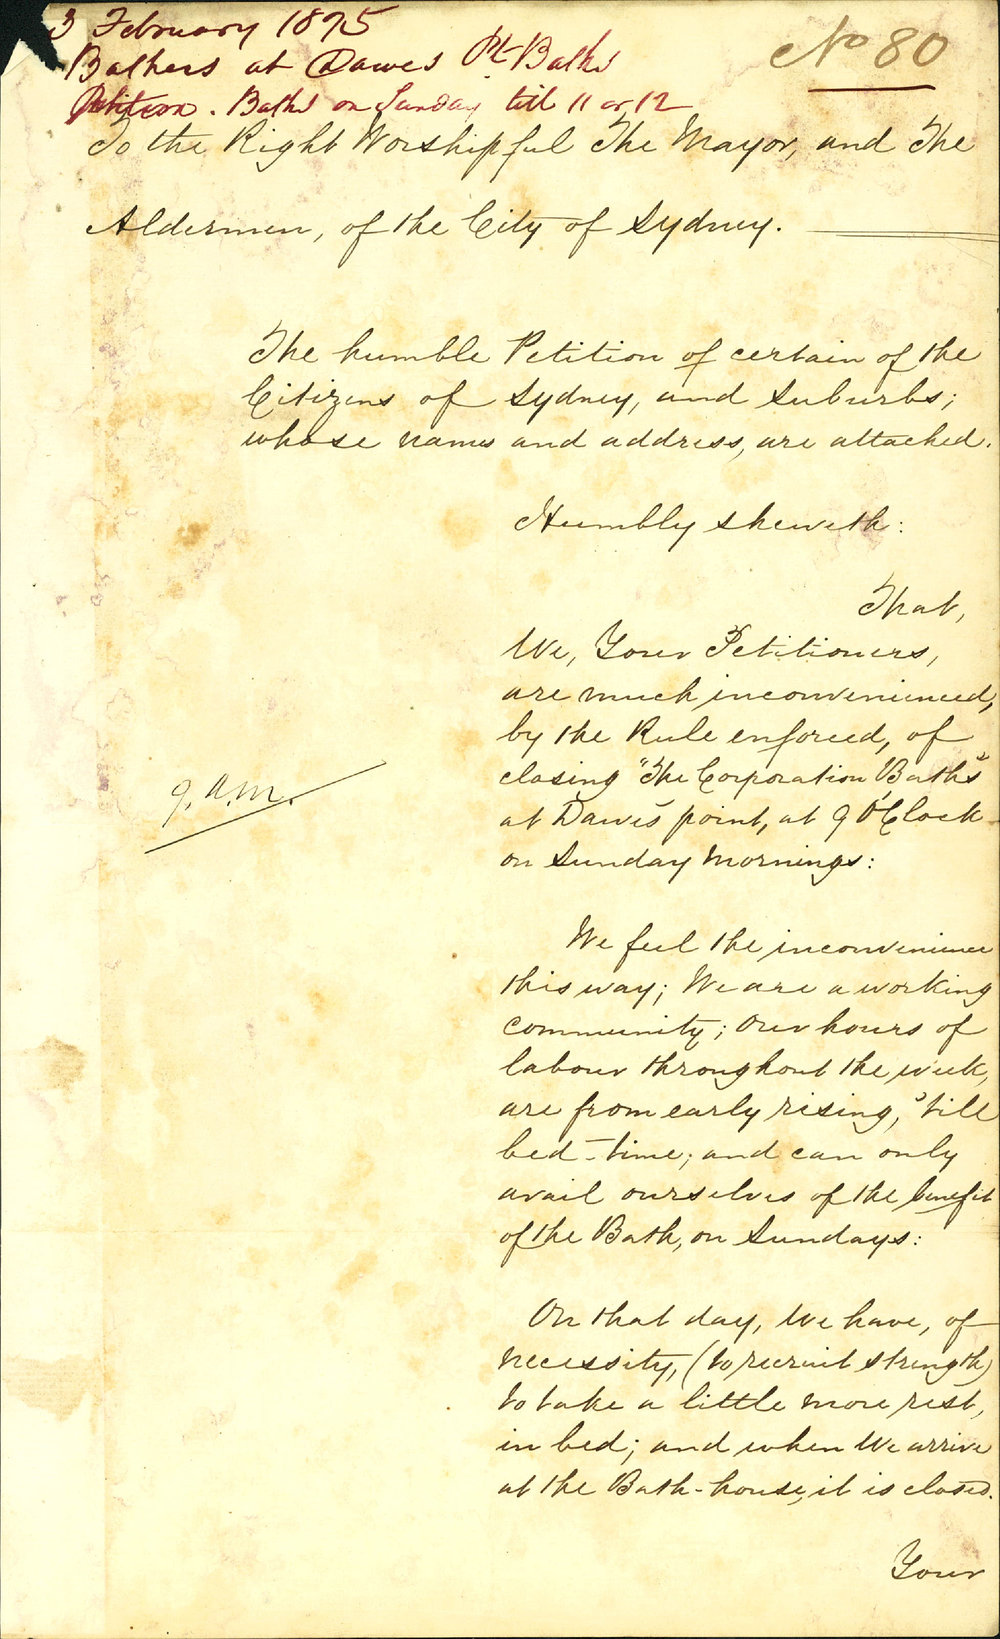 3 February 1875
Bathers at Dawes Pt Baths
Petition. Baths on Sunday till 11 or 12
No 80
To the Right Worshipful The Mayor, and The
Aldermen, of the City of Sydney.
The humble Petition of certain of the
Citizens of Sydney, and Suburbs;
whose names and address, are attached.
Humbly sheweth:
That,
We, Your Petitioners,
are much inconvenienced,
by the Rule enforced, of
closing "The Corporation Baths"
at Dawe's point, at 9 O'Clock
on Sunday Mornings:
9. a.m.
We feel the inconvenience
this way; We are a working
community; our hours of
labour throughout the week,
are from early rising, 'till
bed-time; and can only
avail ourselves of the benefit
of the Bath, on Sundays:
On that day, We have, of
necessity, (to recruit strength)
to take a little more rest,
in bed; and when We arrive
at the Bath-house, it is closed.
Your